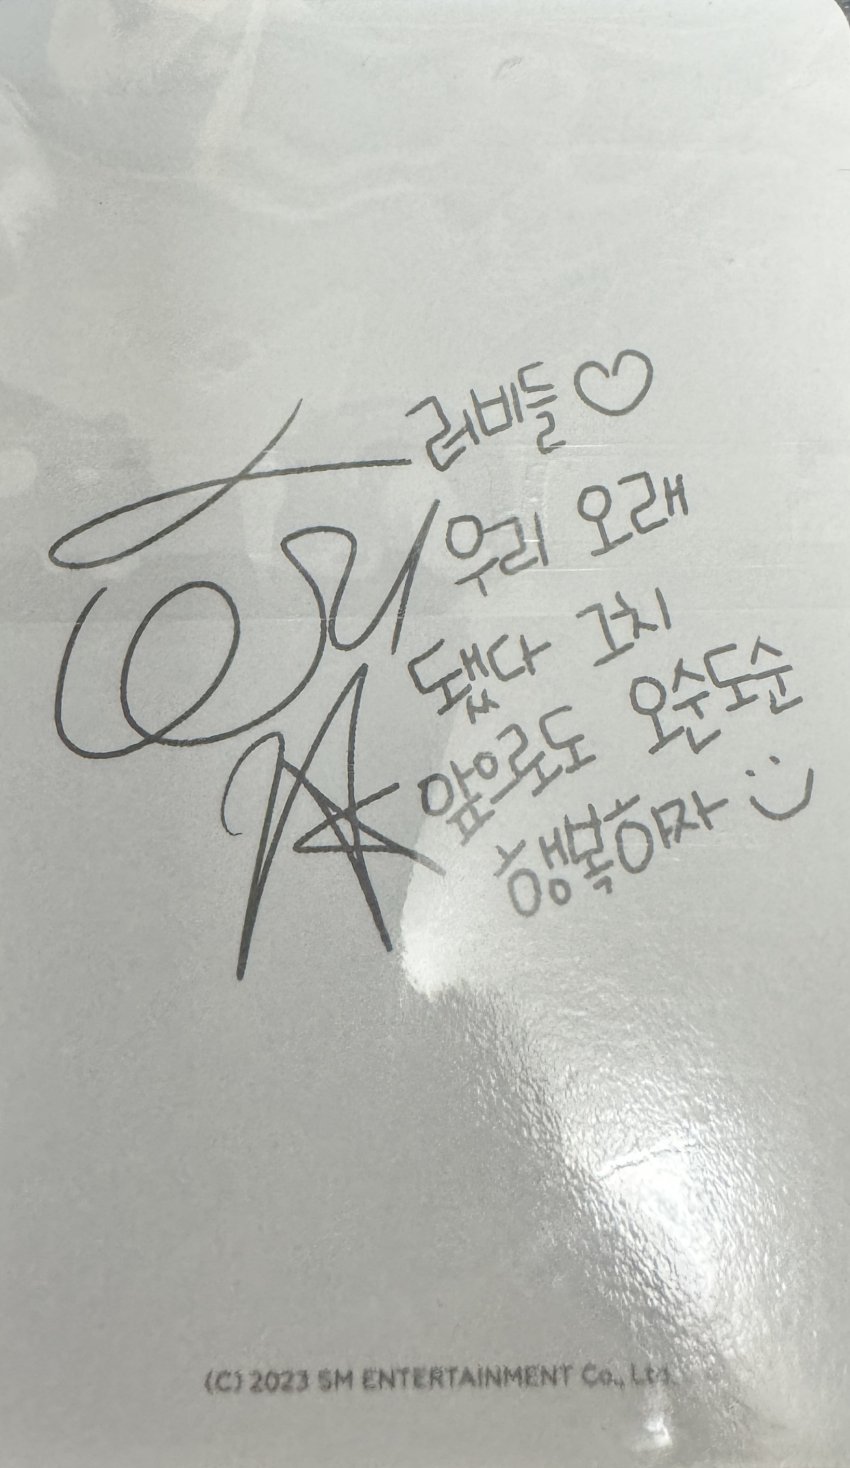 러비들♡
우리 오래
됐다 그치
앞으로도 오순도순
행복하자 :)
(C) 2023 SM ENTERTAINMENT Co., Ltd.